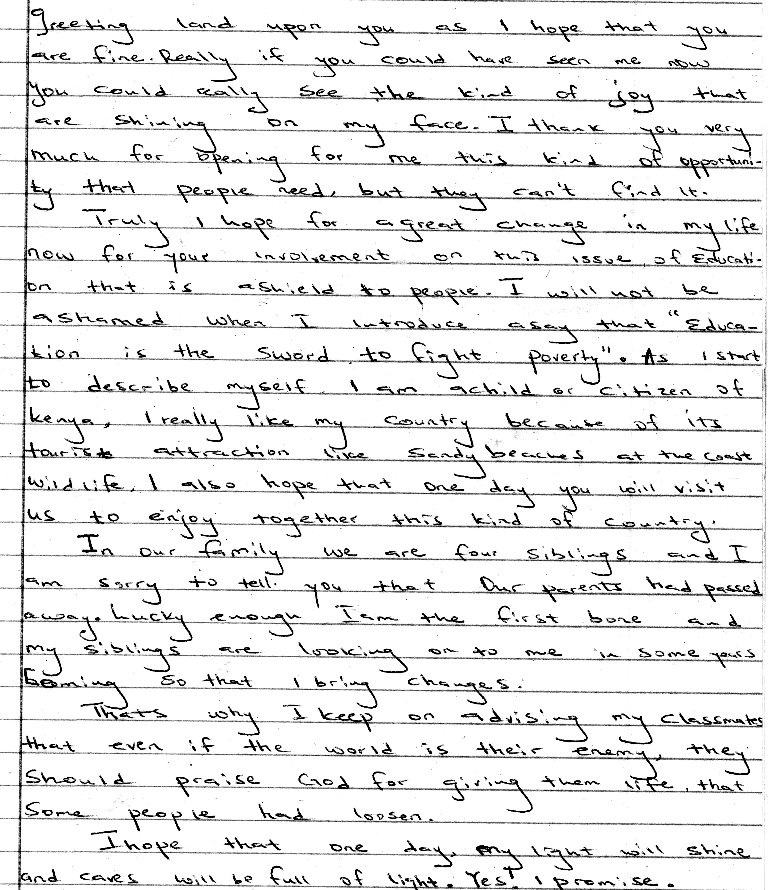 Greeting land upon you as I hope that you
are fine. Really if you could have seen me now
you could really see the kind of joy that
are shining on my face. I thank you very
much for opening for me this kind of opportuni-
ty that people need, but they can't find it.
Truly I hope for a great change in my life
now for your involvement on this issue of Educati-
on that is a shield to people. I will not be
ashamed when I introduce a say that "Educa-
tion is the sword to fight poverty". As I start
to describe myself I am a child or citizen of
Kenya, I really like my country because of its
tourist attraction like Sandy beaches at the coast
wildlife. I also hope that one day you will visit
us to enjoy together this kind of country.
In our family we are four siblings and I
am sorry to tell you that our parents had passed
away. Lucky enough I am the first bone and
my siblings are looking on to me in some years
coming so that I bring changes.
Thats why I keep on advising my classmates
that even if the world is their enemy, they
should praise God for giving them life, that
some people had loosen.
I hope that one day, my light will shine
and caves will be full of light. Yes! I promise.